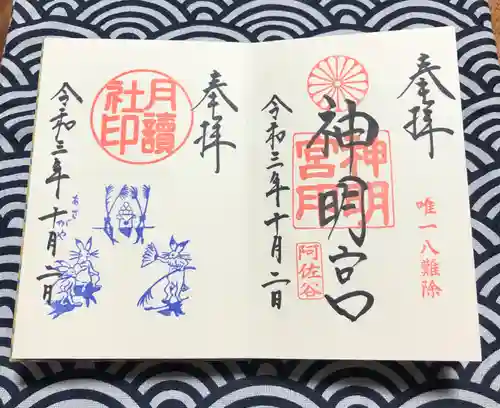 奉拝
唯一八難除
神明宮
神明宮印
阿佐谷
令和三年十月二日
奉拝
月讀社印
あさがや
令和三年十月二日